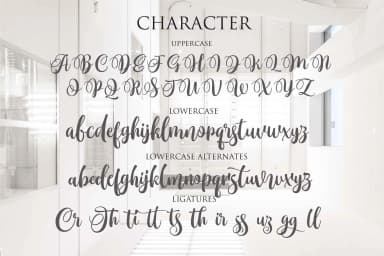 CHARACTER
UPPERCASE
A B C D E F G H I J K L M N
O P Q R S T U V W X Y Z
LOWERCASE
abcdefghijklmnopqrstuvwxyz
LOWERCASE ALTERNATES
abcdefghijklmnopqrstuvwxyz
LIGATURES
Or Oh ti tt ts th ir ss uz gg ll